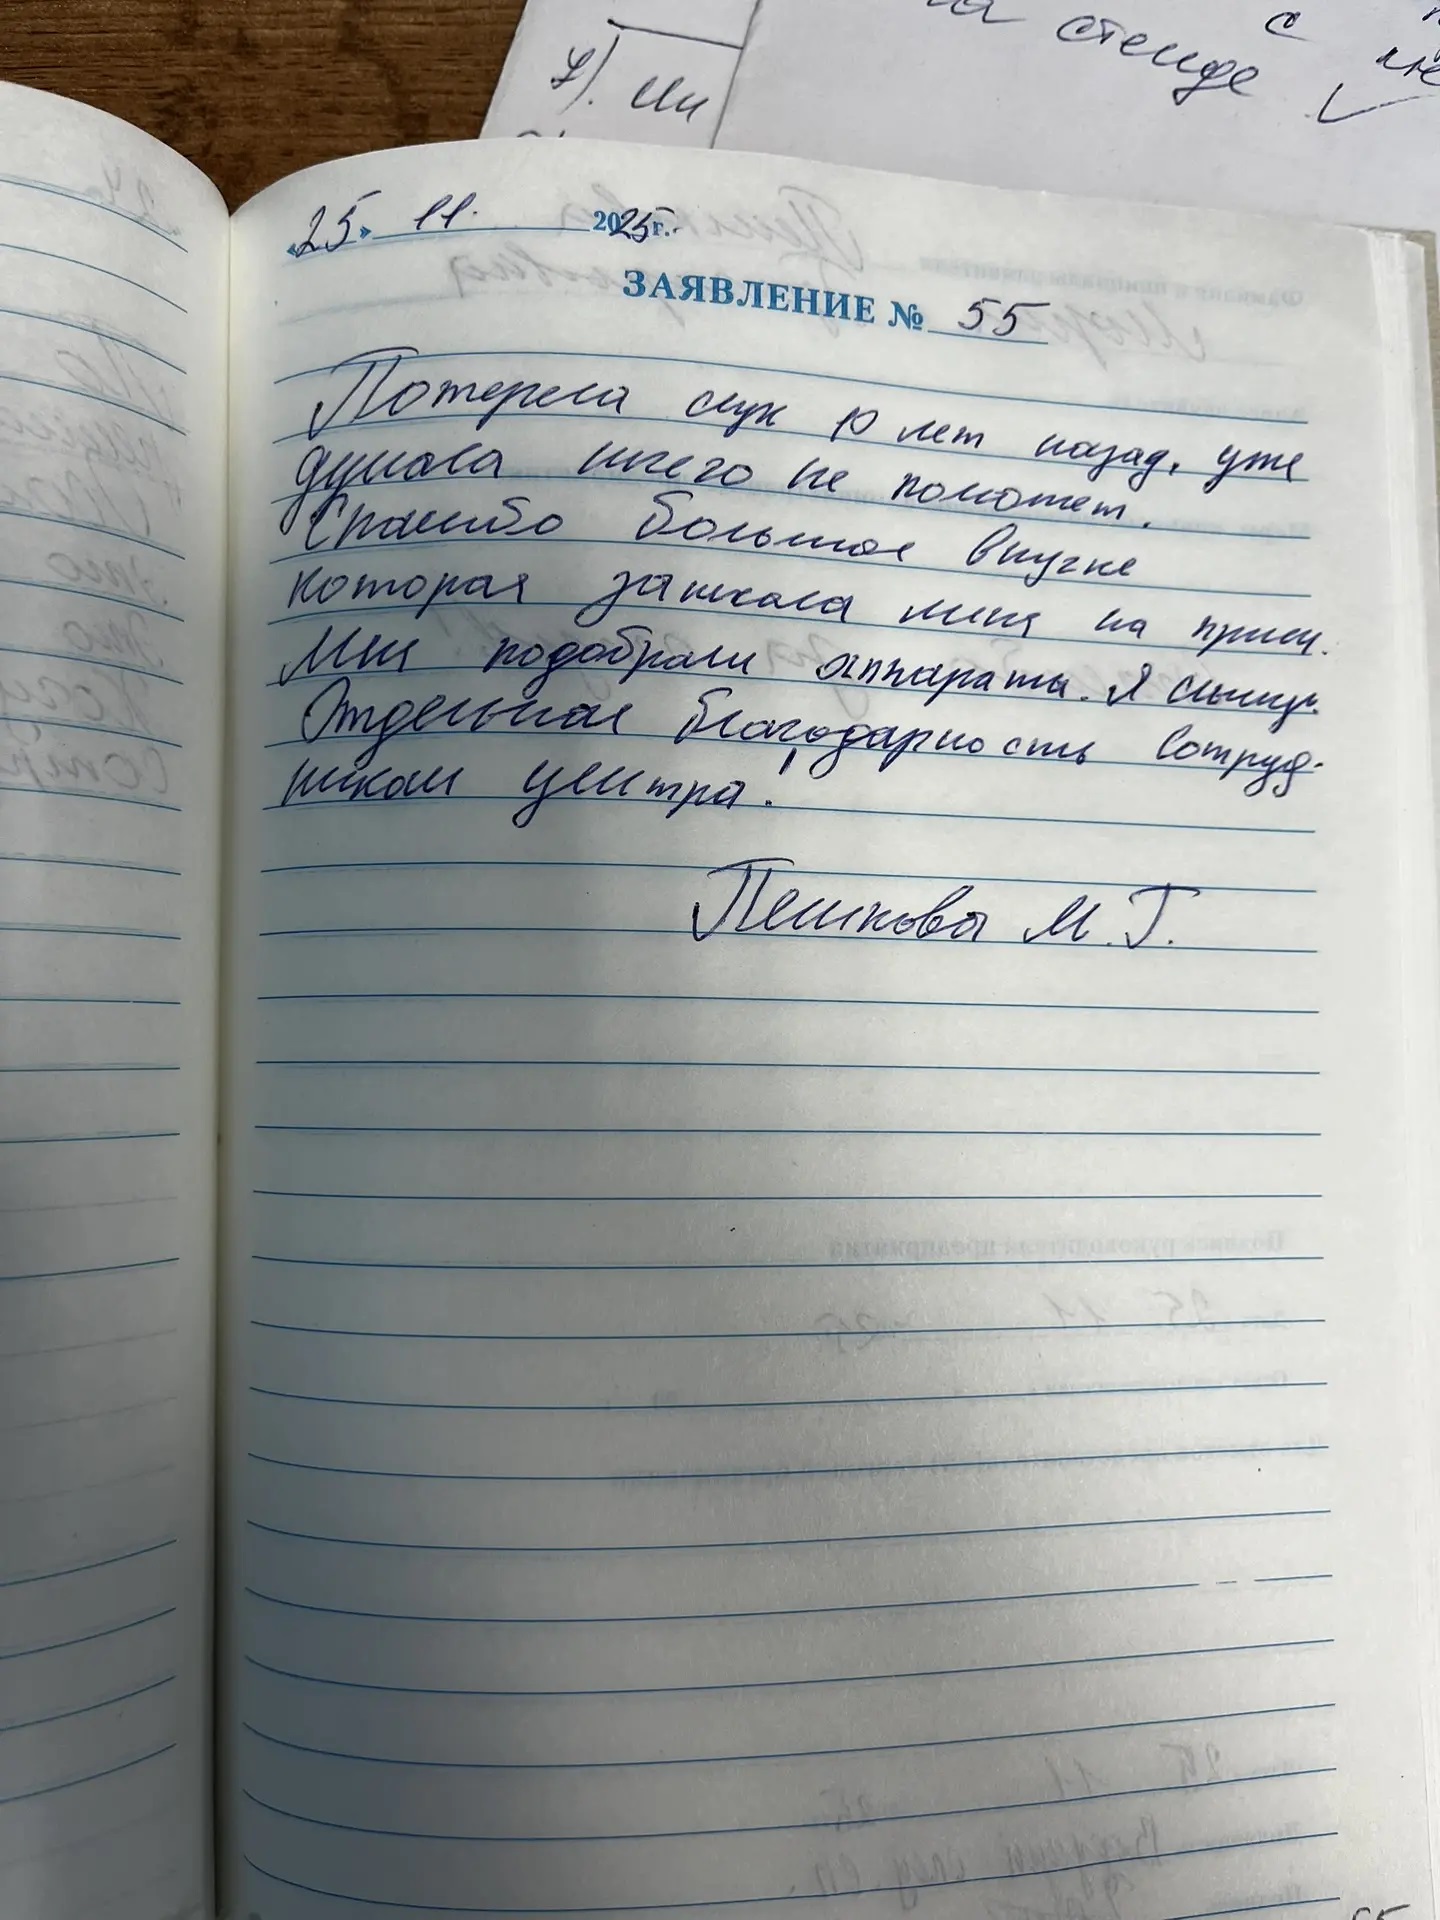 на стенде с
2). Ин
«25» 11. 2025 г.
ЗАЯВЛЕНИЕ № 55
Потеряла слух 10 лет назад, уже
думала ничего не поможет.
Спасибо большое внучке
которая записала меня на прием.
Мне подобрали аппараты. Я слышу.
Отдельная благодарность сотруд-
никам центра!
Пешкова М.Г.